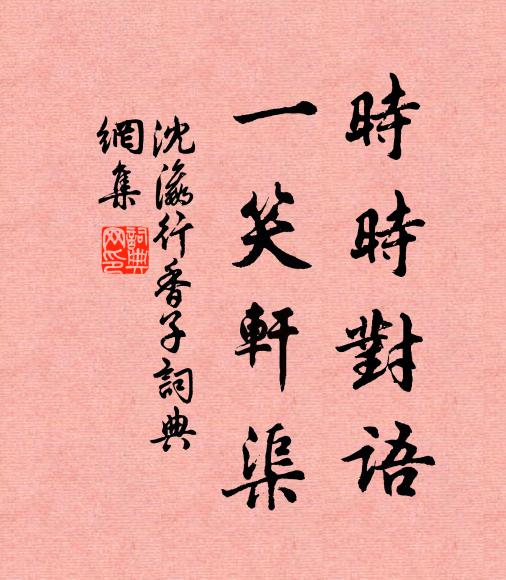 時時對語
一笑軒渠
沈瀛行香子詞典
網集
詞典網印